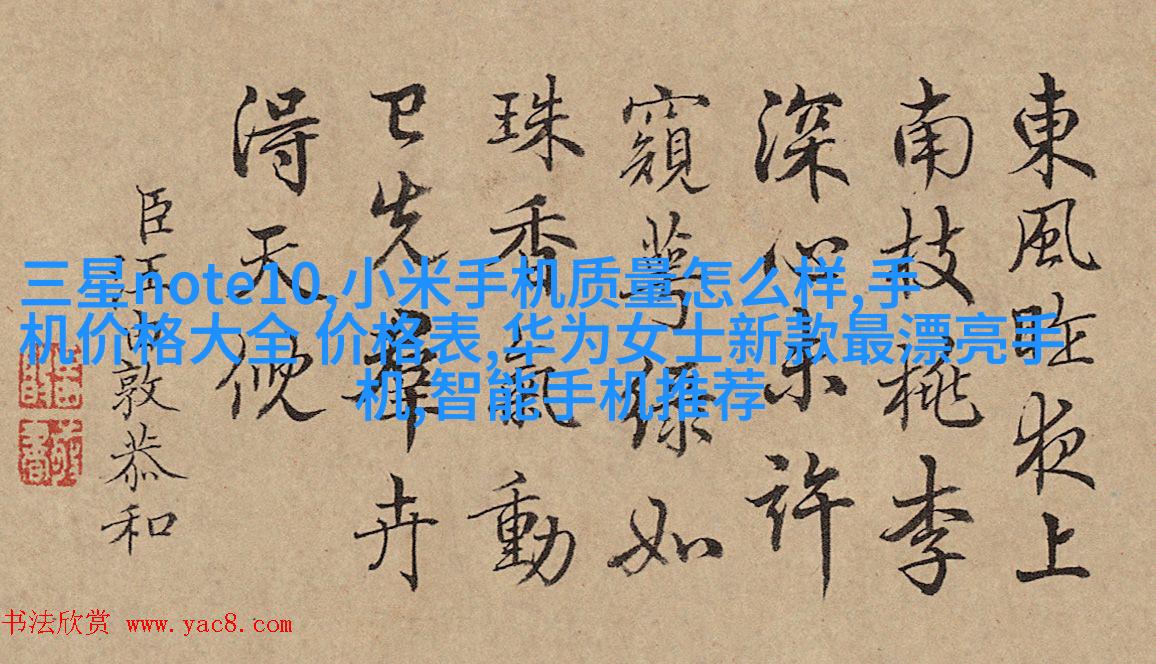 東風昨夜上
南枝桃李
深心未許
窺萼緑如
珠香氣動
已先羣卉
得天
臣汪由敦恭和
三星note10,小米手机质量怎么样,手
机价格大全 价格表,华为女士新款最漂亮手
机,智能手机推荐
书法欣赏 www.yac8.com